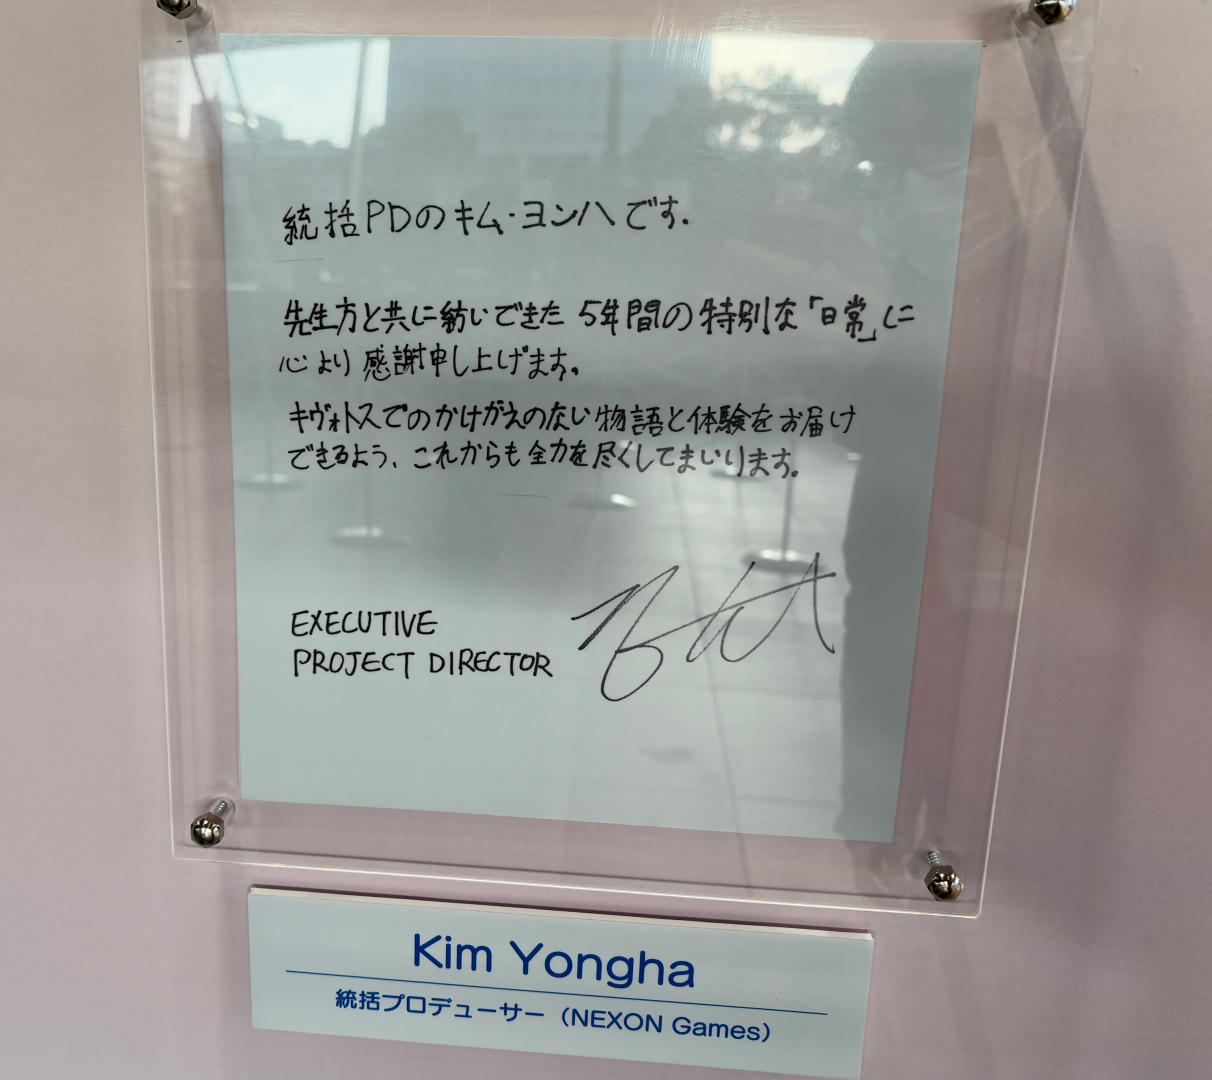 統括PDのキム・ヨンハです.
先生方と共に紡いできた 5年間の特別な「日常」に
心より感謝申し上げます。
キヴォトスでのかけがえのない物語と体験をお届け
できるよう、これからも全力を尽くしてまいります。
EXECUTIVE
PROJECT DIRECTOR
Kim Yongha
統括プロデューサー（NEXON Games）